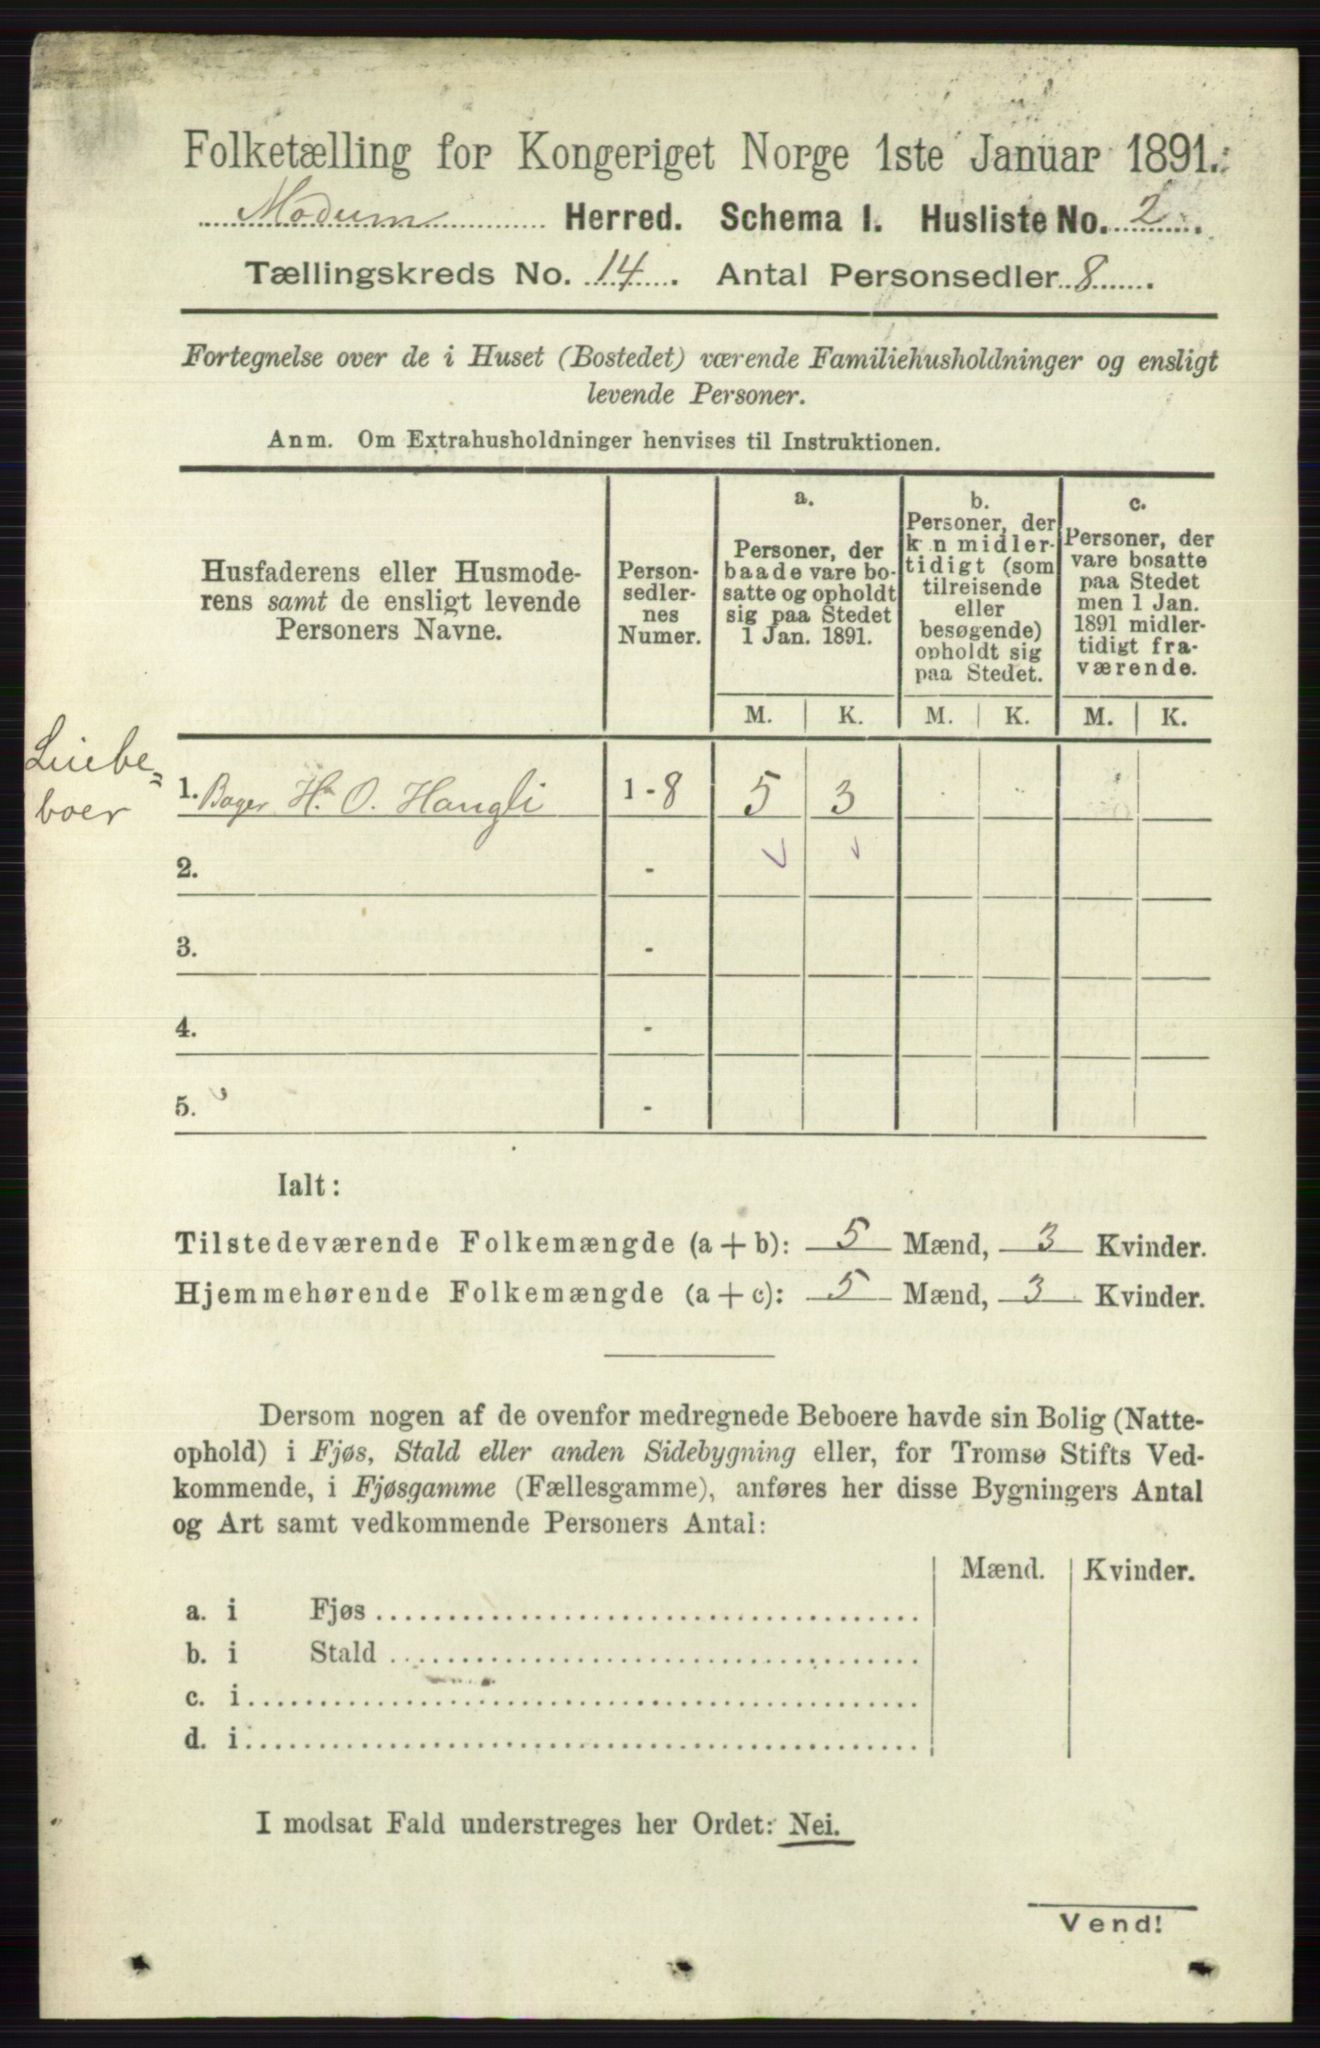 Folketælling for Kongeriget Norge 1ste Januar 1891.
Modum Herred. Schema I. Husliste No. 2.
Tællingskreds No. 14. Antal Personsedler 8.
Fortegnelse over de i Huset (Bostedet) værende Familiehusholdninger og ensligt
levende Personer.
Anm. Om Extrahusholdninger henvises til Instruktionen.
Husfaderens eller Husmode-
rens samt de ensligt levende
Personers Navne.
Person-
sedler-
nes
Numer.
a.
Personer, der
baade vare bo-
satte og opholdt
sig paa Stedet
1 Jan. 1891.
b.
Personer, der
k n midler-
tidigt (som
tilreisende
eller
besøgende)
opholdt sig
paa Stedet.
c.
Personer, der
vare bosatte
paa Stedet
men 1 Jan.
1891 midler-
tidigt fra-
værende.
M. K. M. K. M. K.
boer
1. Bager H. O. Haugli 1-8 5 3
2. -
3. -
4. -
5. -
Ialt:
Tilstedeværende Folkemængde (a + b): 5 Mænd, 3 Kvinder.
Hjemmehørende Folkemængde (a + c): 5 Mænd, 3 Kvinder.
Dersom nogen af de ovenfor medregnede Beboere havde sin Bolig (Natte-
ophold) i Fjøs, Stald eller anden Sidebygning eller, for Tromsø Stifts Ved-
kommende, i Fjøsgamme (Fællesgamme), anføres her disse Bygningers Antal
og Art samt vedkommende Personers Antal:
Mænd. Kvinder.
a. i Fjøs
b. i Stald
c. i
d. i
I modsat Fald understreges her Ordet: Nei.
Vend!